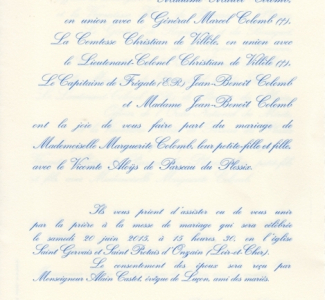 Madame Marcel Colomb,
en union avec le Général Marcel Colomb (†),
La Comtesse Christian de Villèle, en union avec
le Lieutenant-Colonel Christian de Villèle (†),
Le Capitaine de Frégate (E.R.) Jean-Benoît Colomb
et Madame Jean-Benoît Colomb
ont la joie de vous faire part du mariage de
Mademoiselle Marguerite Colomb, leur petite-fille et fille,
avec le Vicomte Aloÿs de Parseau du Plessix.
Ils vous prient d'assister ou de vous unir
par la prière à la messe de mariage qui sera célébrée
le samedi 20 juin 2015, à 15 heures 30, en l'église
Saint Gervais et Saint Protais d'Ouzain (Loir-et-Cher).
Le consentement des époux sera reçu par
Monseigneur Alain Castet, évêque de Luçon, ami des mariés.